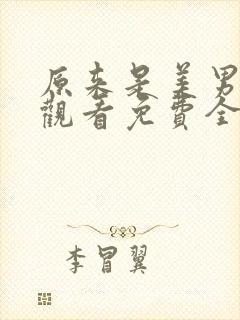 原来是美男
觀看免費全
李冒翼